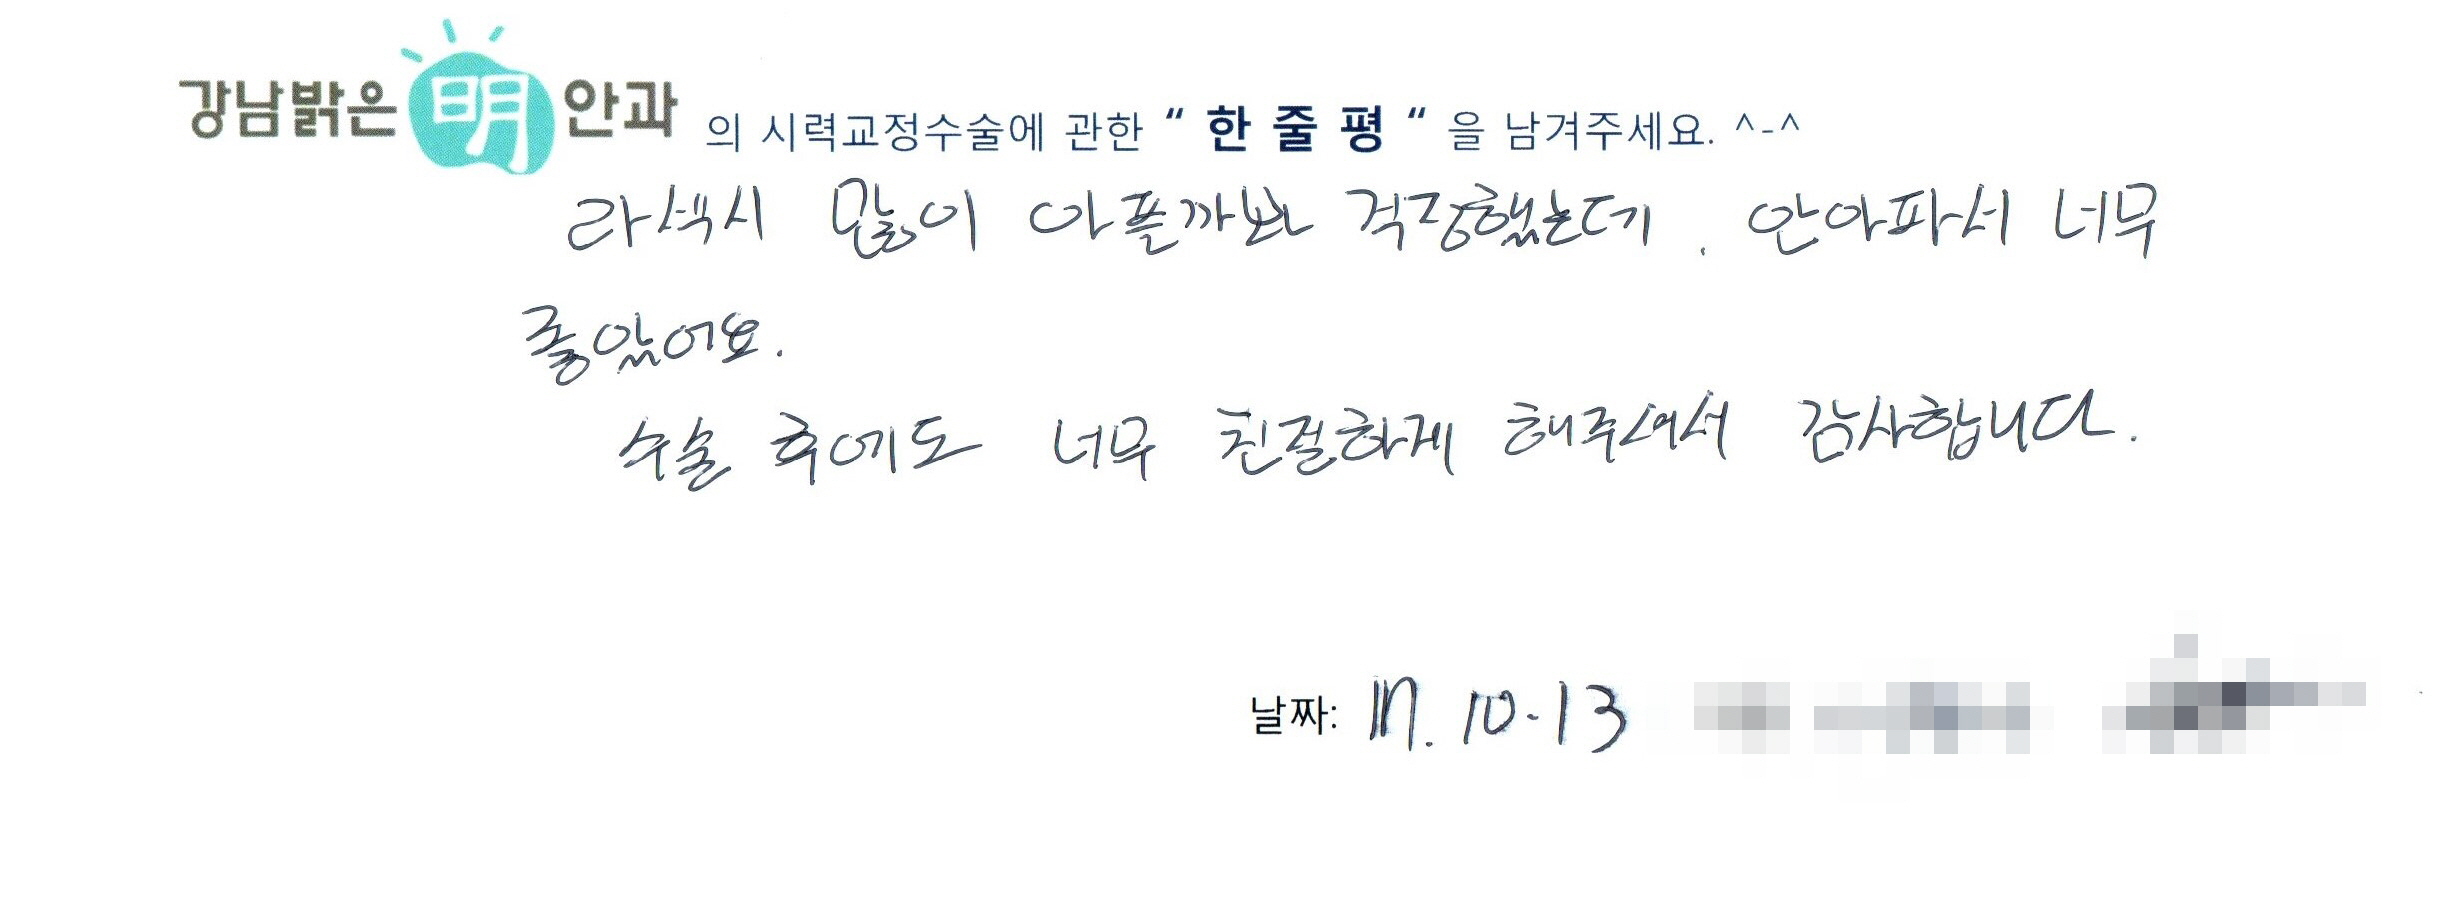 강남밝은 明 안과 의 시력교정수술에 관한 “ 한 줄 평 “ 을 남겨주세요. ^-^
라섹시 많이 아플까봐 걱정했는데. 안아파서 너무
좋았어요.
수술 후에도 너무 친절하게 해주셔서 감사합니다.
날짜: 17. 10. 13